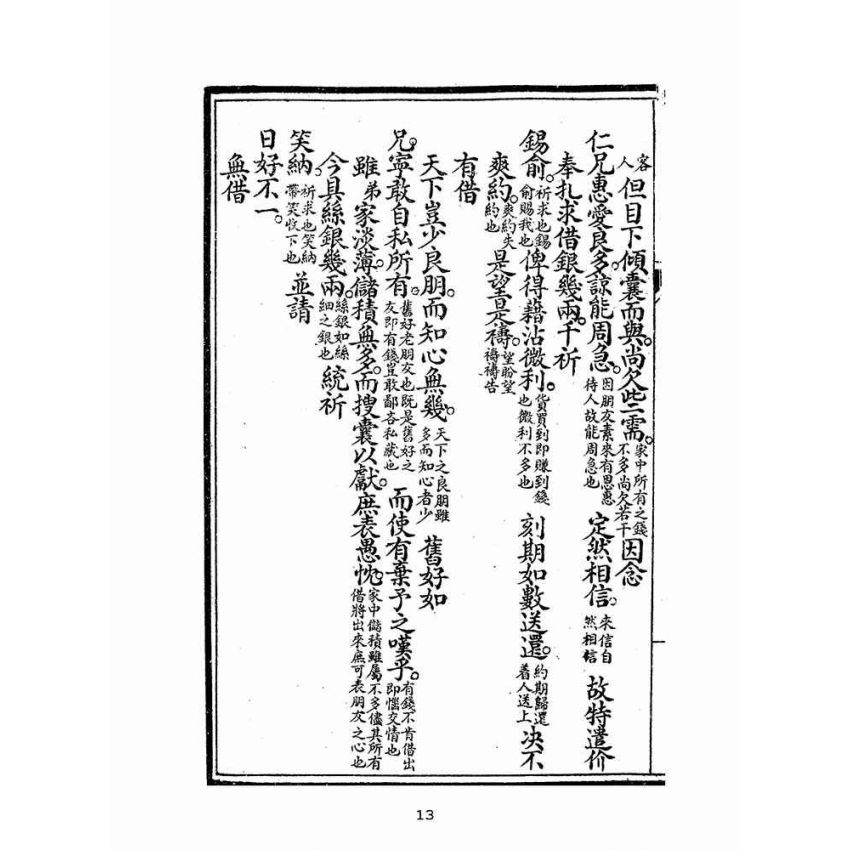 客人但目下傾囊而與。尚欠此二需。家中所有之錢不多尚欠若干因念
仁兄惠愛良多。諒能周急。因朋友素來有恩惠待人故能周急也定然相信。來信自然相信故特遣价
奉扎求借銀幾兩。千祈
錫俞。祈求也錫俞賜我也俾得藉沾微利。貨買到即賺到錢也微利不多也刻期如數送還。約期歸還着人送上决不
爽約。爽約失約也是望是禱。望盼望禱禱告
有借
天下豈少良朋。而知心無幾。天下之良朋雖多而知心者少舊好如
兄。寧敢自私所有。舊好老朋友也既是舊好之友即有錢豈敢鄙吝私藏也而使有棄予之嘆乎。有錢不肯借出即惱交情也
雖弟家淡薄。儲積無多。而搜囊以獻。庶表愚忱。家中儲積雖屬不多儘其所有借將出來庶可表朋友之心也
今具絲銀幾兩。絲銀如絲細之銀也統祈
笑納。祈求也笑納帶笑收下也並請
日好不一。
無借
13